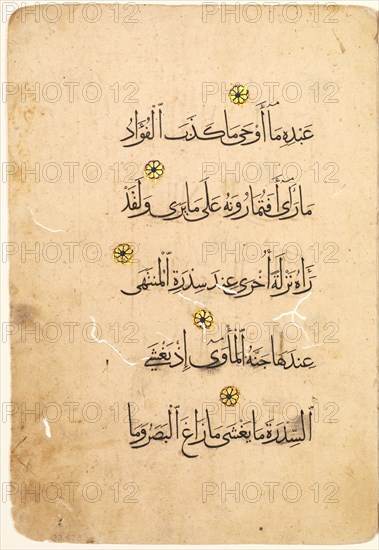 عَبْدِهِ مَا أَوْحَى مَا كَذَبَ الْفُؤَادُ
مَا رَأَى أَفَتُمَارُونَهُ عَلَى مَا يَرَى وَلَقَدْ
رَآهُ نَزْلَةً أُخْرَى عِنْدَ سِدْرَةِ الْمُنْتَهَى
عِنْدَهَا جَنَّةُ الْمَأْوَى إِذْ يَغْشَى
السِّدْرَةَ مَا يَغْشَى مَا زَاغَ الْبَصَرُ وَمَا
PHOTO 12